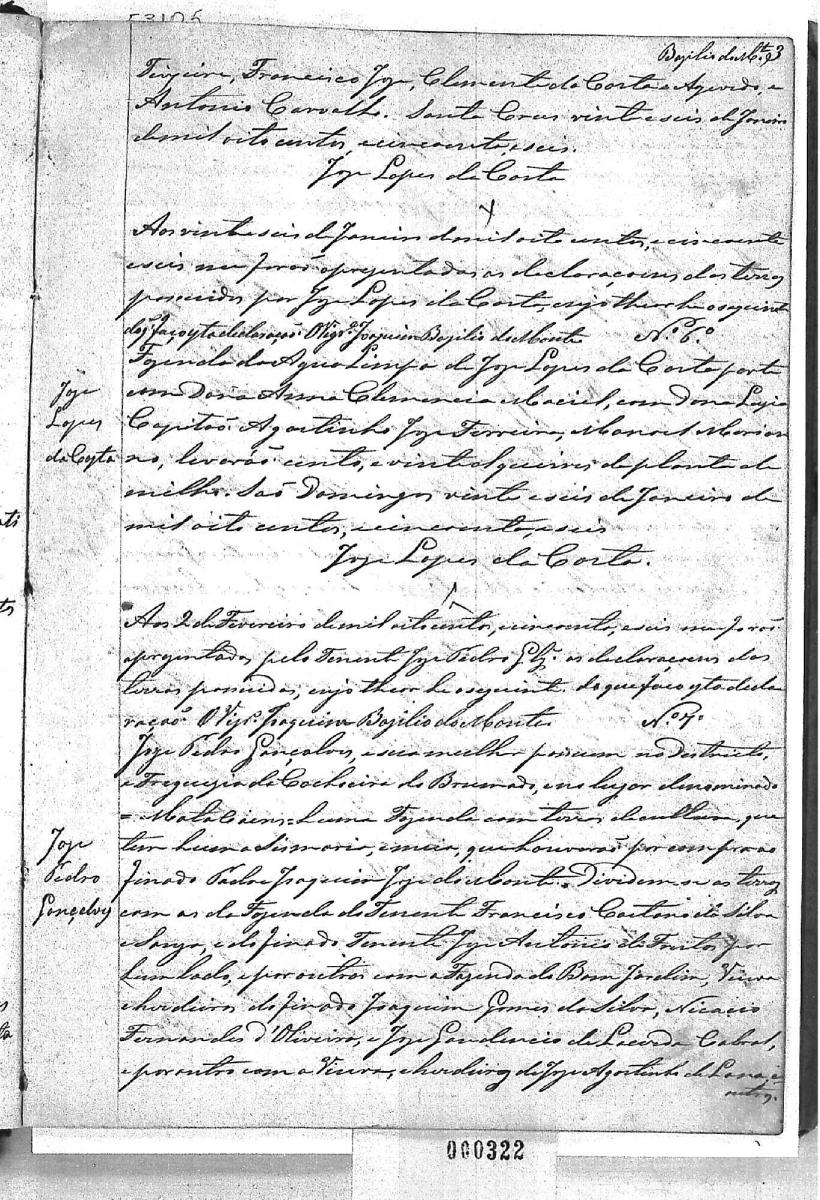 53105
Bazilio do Mte. 3
Teixeira, Francisco Joze, Clemente da Costa e Azevedo, e
Antonio Carvalho. Santa Crus vinte e seis de Janeiro
de mil oito centos, e cincoenta, e seis.
Joze Lopes da Costa
Aos vinte e seis de Janeiro de mil oito centos, e cincoenta
e seis me forão aprezentadas as declaraçoens das terras
possuidas por Joze Lopes da Costa, cujo theor he o seguinte
do q' faço esta declaração. O Vigr.º Joaquim Bazilio do Monte N.º 6.º
Fazenda da Agua Limpa de Joze Lopes da Costa parte
com Dona Anna Clemencia Maciel, com Dona
Capitão Agostinho Joze Ferreira, Manoel Marian
no, levarão cento, e vinte alqueires de planta de
milho. São Domingos vinte e seis de Janeiro de
mil oito centos, e cincoenta, e seis
Joze Lopes da Costa.
Joze
Lopes
da Costa
Aos 2 de Fevereiro de mil oito centos, e cincoenta, e seis me forão
aprezentadas pelo Tenente Joze Pedro Glz. as declaraçoens das
terras possuidas, cujo theor he o seguinte. do que faço esta decla
ração. O Vigr.º Joaquim Bazilio do Monte N.º 7.º
Joze Pedro Gonçalves, e sua mulher possuem no Destricto,
e Freguezia da Caxoeira do Brumado, e no lugar denominado
= Mata Caens = huma Fazenda com terras de cultura, que
tem huma Sismaria, e meia, que houverão por compra ao
finado Padre Joaquim Joze do Monte. Dividem-se as terras
com as da Fazenda do Tenente Francisco Caetano da Silva
e do finado Tenente Joze Antonio de Freitas por
hum lado, e por outros com a Fazenda do Bom Jardim, Viuva
e herdeiros do finado Joaquim Gomes da Silva, Nicacio
Fernandes d'Oliveira, e Joze Gaudencio de Lacerda Cabral,
e por outro com a Viuva, e herdeiros de Joze Agostinho de Lana, e
outros.
Joze
Pedro
Gonçalves
000322